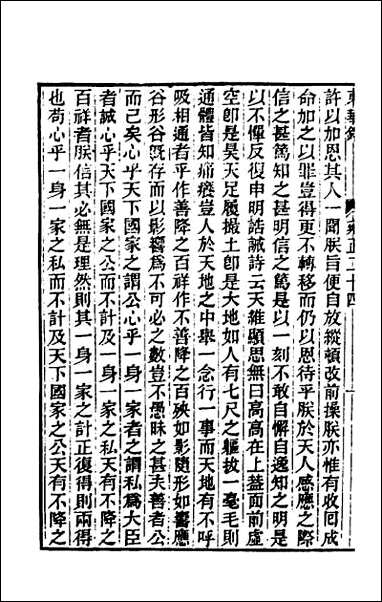 東華錄 雍正二十四
許以加恩其人一聞朕旨便自放縱頓改前操朕亦惟有收回成
命加之以罪豈得更不轉移而仍以恩待乎朕於天人感應之際
信之甚篤知之甚明信之篤是以一刻不敢自懈自逸知之明是
以不憚反復申明誥誡詩云天維顯思無曰高高在上蓋面前虛
空卽是昊天足履撮土卽是大地如人有七尺之軀拔一毫毛則
通體皆知痛癢豈人於天地之中舉一念行一事而天地有不呼
吸相通者乎作善降之百祥作不善降之百殃如影隨形如響應
谷形谷旣存而以影響爲不可必之數豈不愚昧之甚夫善者公
而已矣心乎天下國家之謂公心乎一身一家者之謂私爲大臣
者誠心乎天下國家之公而不計及一身一家之私天有不降之
百祥者朕信其必無是理然則其一身一家之計正復得則兩得
也苟心乎一身一家之私而不計及天下國家之公天有不降之